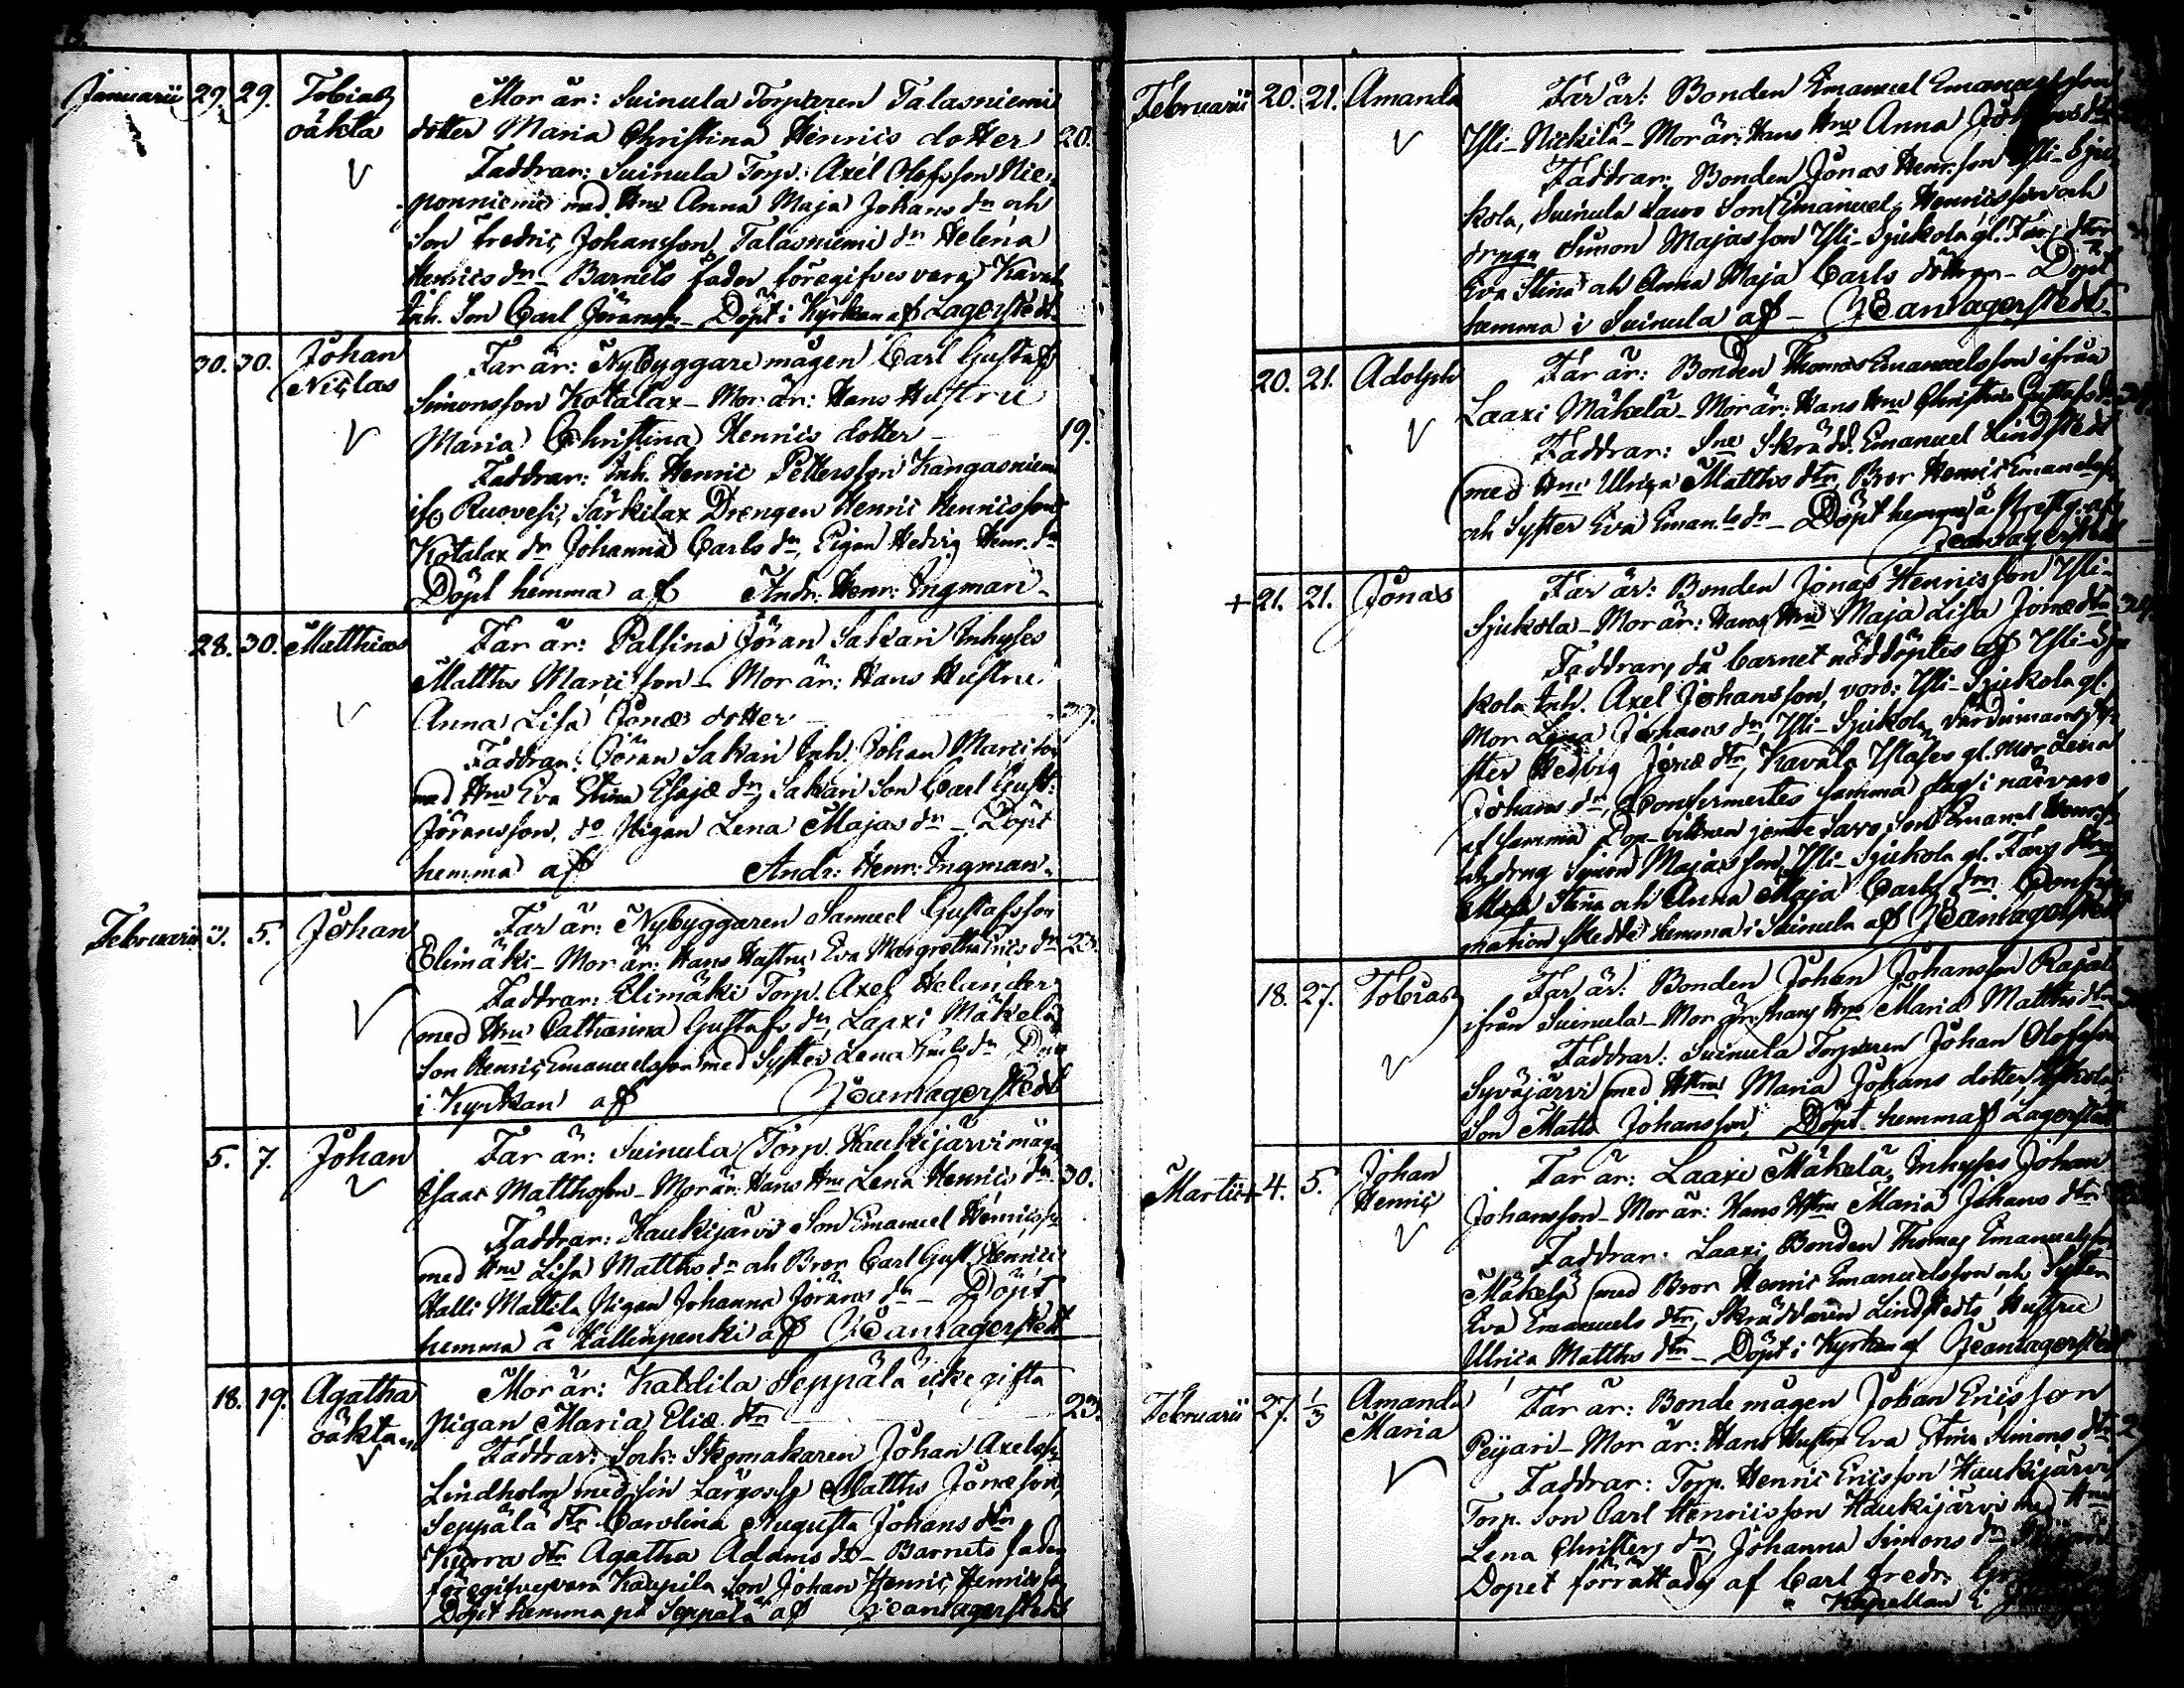 Januarii 29. 29. Tobias Mor är: Suinula Torparen Talasniemi
oäkta dotter Maria Christina Henrics dotter 20.
Faddrar: Suinula Torp. Axel Olofsson Nie-
med Hru Anna Maja Johans dr och
Son Fredric Johansson, Talasniemi dr Helena
Henrics dr - Barnets fader föregifves vara
Inh. Son Carl - Döpt i Kyrkan af Lagerstedt.
30. 30. Johan Far är: Nybyggare mågen Carl Gustaf
Niclas Simonsson Kotalax - Mor är: Hans Hustru
Maria Christina Henrics dotter - 19.
Faddrar: Inh. Henric Pettersson Kangasniemi
Ruovesi, Särkilax Drengen Henric Henricsson
Kotalax dr Johanna Carls dr, Pigan Hedvig Henr. dr
Döpt hemma af Andr: Henr: Ingman.
28. 30. Matthias Far är: Palsina Jöran Sakari Inhyses
Matths Marcisson - Mor är: Hans Hustru
Anna Lisa Jonæ dotter -
Faddrar: Jöran Sakari Inh. Johan Marcisson
med Hru Eva Stina Esajæ dr, Sakari Son Carl Gust:
Jöransson, do Pigan Lena Majas dr - Döpt
hemma af Andr: Henr: Ingman.
Februarii 3. 5. Johan Far är: Nybyggaren Samuel Gustafsson
Elimäki - Mor är: Hans Hustru Eva Margretha Erics dr 23.
Faddrar: Elimäki Torp. Axel Helander
med Hru Catharina Gustafs dr, Laaxi Mäkelä
Son Henric Emanuelsson med Syster Lena
i Kyrkan af Jean Lagerstedt
5. 7. Johan Far är: Suinula Torp. Haukijärvi måg
Isaac Matthsson - Mor är: Hans Hru Lena Henrics dr 30.
Faddrar: Haukijärvi Son Emanuel Henricsson
med Hru Lisa Matths dr och Bror Carl Gust. Henrics
Halli Mattila Pigan Johanna Jörans dr - Döpt
hemma å Hallinpenki af Jean Lagerstedt
18. 19. Agatha Mor är: Kaldila Seppälä icke gifta
oäkta pigan Maria Eliæ dr 23.
Faddrar: Sock: Skomakaren Johan Axelsson
Lindholm med sin Lärgosse Matths Jonæson,
Seppälä dtr Carolina Augusta Johans dtr
dtr Agatha Adams dr - Barnets fader
föregifves vara Kaupila Son Johan Henric Henricsson
Döpt hemma på Seppälä af Jean Lagerstedt
Februarii 20. 21. Amanda Far är: Bonden Emanuel Emanuelsson
Ysli-Nickilä - Mor är: Hans Hru Anna
Faddrar: Bonden Jonas Henr:son Ysli-Sju-
kola, Suinula Savo Son Emanuel Henricsson och
dreng Simon Majasson Ysli-Sjukola gl. Far
Eva Stina och Anna Maja Carls döttrar - Döpt
hemma i Suinula af - Jean Lagerstedt.
20. 21. Adolph Far är: Bonden Thomas Emanuelsson ifrån
Laaxi Mäkelä - Mor är: Hans Hru Christina Gustafs dr
Faddrar: Skrädd. Emanuel Lindstedt
med Hru Ulrica Matths dtr, Bror Henric Emanuelsson
och Syster Eva Eman.ls dr - Döpt hemma å af
Jean Lagerstedt
+ 21. 21. Jonas Far är: Bonden Jonas Henricsson Ysli-
Sjukola - Mor är: Hans Hru Maja Lisa Jonæ dtr
Faddrar, då barnet nöddöptes af Ysli-Sju-
kola Inh. Axel Johansson, voro: Ysli-Sjukola gl.
Mor Lena Johans dr, Ysli-Sjukola
Hedvig Jonæ dtr, Kavala gl. Mor Lena
Johans dr, Confirmertes samma dag i närvaro
af samma Dop-vittnen jemte Savo Son Emanuel Henrs
och dreng Simon Majasson, Ysli-Sjukola gl. Fars
Stina och Anna Maja Carls drr Confir-
mation skedde hemma i Suinula af Jean Lagerstedt
18. 27. Tobias Far är: Bonden Johan Johansson Rajala
ifrån Suinula - Mor är: hans Hru Maria Matths dtr
Faddrar: Suinula Torparen Johan Olofsson
Syväjärvi med Hru Maria Johans dotter
Son Matts Johansson, Döpt hemma af Lagerstedt
Martii + 4. 5. Johan Far är: Laaxi Mäkelä Inhyses Johan
Henric Johansson - Mor är: Hans Hru Maria Johans dtr
Faddrar: Laaxi Bonden Thomas Emanuelsson
Mäkelä med Bror Henric Emanuelsson och Syster
Eva Emanuels dtr, Skräddaren Lindstedts Hustru
Ulrica Matths dtr - Döpt i Kyrkan af Jean Lagerstedt
Februarii 27. 1/3 Amanda Far är: Bonde mågen Johan Ericsson
Maria Peijari - Mor är: Hans Hustru Eva Stina Simons dtr 2
Faddrar: Torp. Henric Ericsson Haukijärvi
Torp. Son Carl Henricsson Haukijärvi med Hru
Lena Christers dr, Johanna Simons dr
Dopet förrättades af Carl Fredr.
Kapellan i